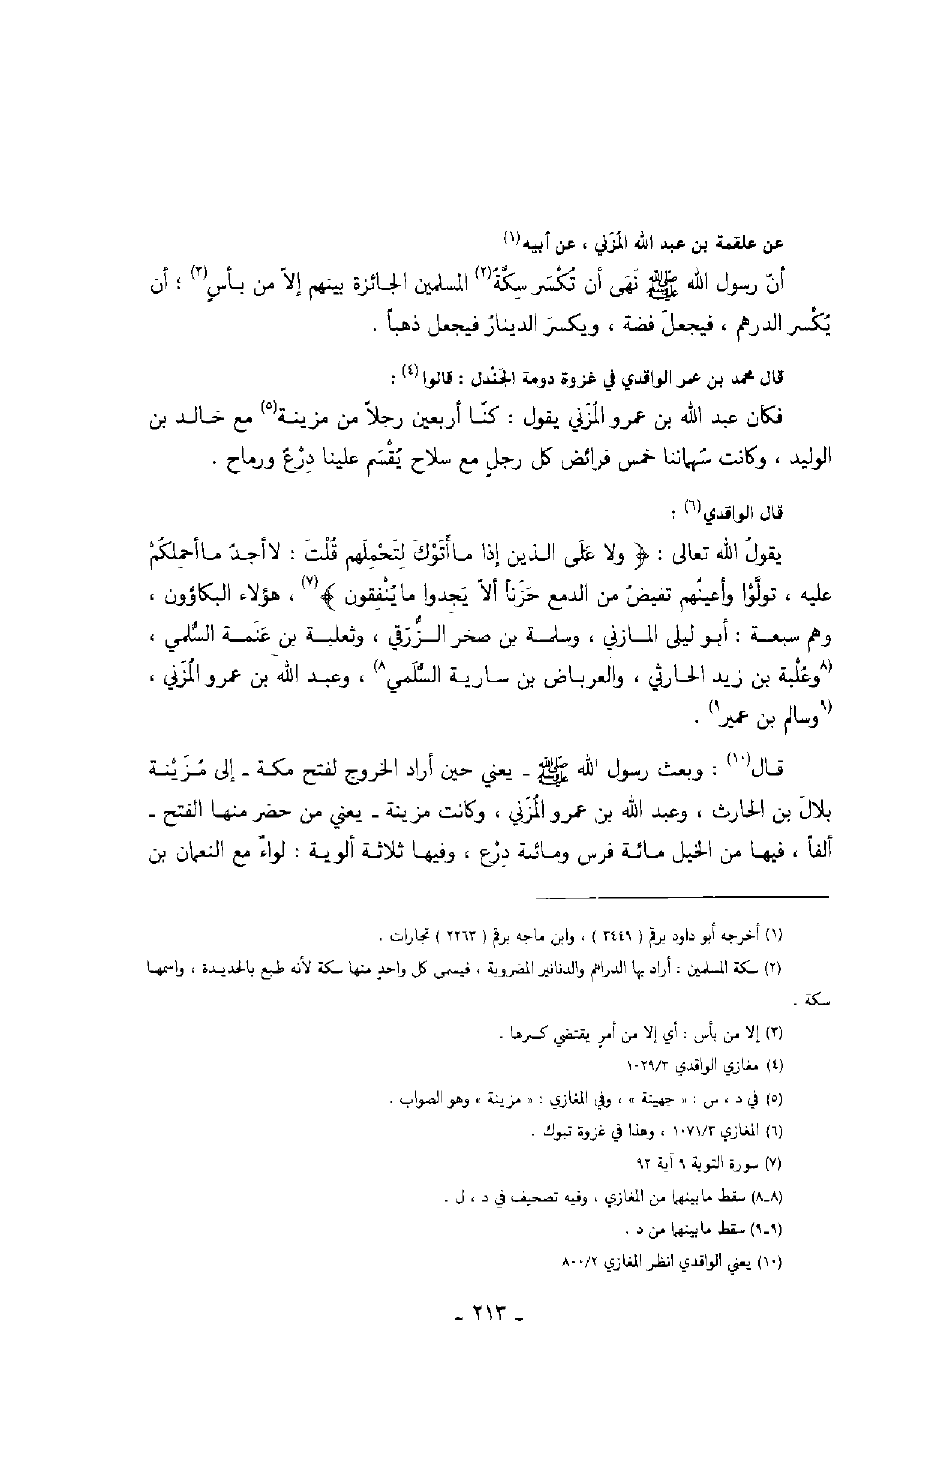 عن علقمة بن عبد الله المُزَني ، عن أبيه(١)
أنّ رسول الله ﷺ نَهَى أن تُكْسَر سِكَّةُ(٢) المسلمين الجـائزة بينهم إلاّ من بـأسٍ(٣) ؛ أن
يُكْسر الدرهم ، فيجعلَ فضة ، ويكسرَ الدينارُ فيجعل ذهباً .
قال محمد بن عمر الواقدي في غزوة دومة الجَنْدل : قالوا(٤) :
فكان عبد الله بن عمرو المُزَني يقول : كنّـا أربعين رجلاً من مزينـة(٥) مع خـالـد بن
الوليد ، وكانت سُهماننا خمس فرائض كل رجلٍ مع سلاح يُقْسَم علينا دِرْعٌ ورماح .
قال الواقدي(٦) :
يقولُ الله تعالى : ﴿ ولا عَلَى الـذين إذا مـاأَتَوْكَ لِتَحْمِلَهم قُلْتَ : لاأجـدُ مـاأحملكُمْ
عليه ، تولَّوْا وأعينُهم تفيضُ من الدمع حَزَناً ألاّ يَجِدوا مايُنْفِقون ﴾(٧) ، هؤلاء البكاؤون ،
وهم سبعـة : أبـو ليلى المـازني ، وسلمـة بن صخر الـزُّرَقي ، وثعلبـة بن عَنَمـة السُّلمي ،
(٨وعُلْبة بن زيد الحارثي ، والعرباض بن سـاريـة السُّلَمي٨) ، وعبـد الله بن عمرو المُزَني ،
(٩وسالم بن عمير٩) .
قـال(١٠) : وبعث رسول الله ﷺ ـ يعني حين أراد الخروج لفتح مكـة ـ إلى مُـزَيْنـة
بلالَ بن الحارث ، وعبد الله بن عمرو المُزَني ، وكانت مزينة ـ يعني من حضر منهـا الفتح ـ
ألفاً ، فيهـا من الخيل مـائـة فرس ومـائـة دِرْع ، وفيهـا ثلاثـة ألويـة : لواءٌ مع النعمان بن
(١) أخرجه أبو داود برقم ( ٣٤٤٩ ) ، وابن ماجه برقم ( ٢٢٦٣ ) تجارات .
(٢) سكة المسلمين : أراد بها الدراهم والدنانير المضروبة ، فيسمى كل واحدٍ منهـا سكة لأنه طبع بالحديـدة ، واسمهـا
سكة .
(٣) إلا من بأس : أي إلا من أمرٍ يقتضي كسرها .
(٤) مغازي الواقدي ١٠٢٩/٣
(٥) في د ، س : « جهينة » ، وفي المغازي : « مزينة » وهو الصواب .
(٦) المغازي ١٠٧١/٣ ، وهذا في غزوة تبوك .
(٧) سورة التوبة ٩ آية ٩٢
(٨ـ٨) سقط مابينها من المغازي ، وفيه تصحيف في د ، ل .
(٩ـ٩) سقط مابينها من د .
(١٠) يعني الواقدي انظر المغازي ٨٠٠/٢
ـ ٢١٣ ـ